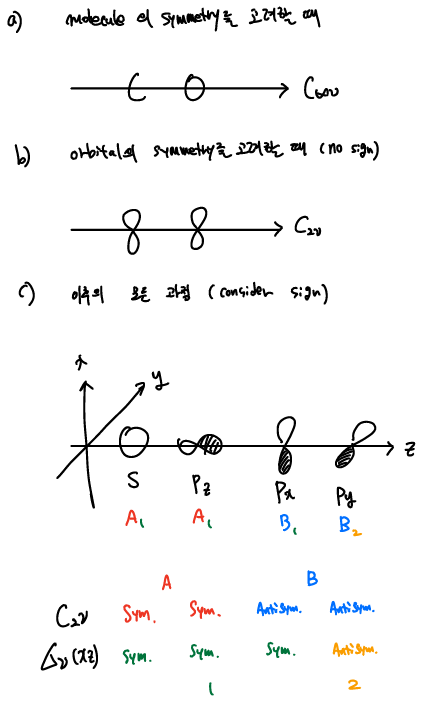 a) molecule의 symmetry를 고려할 때
C O C∞v
b) orbital의 symmetry를 고려할 때 (no sign)
C₂v
c) 이후의 모든 과정 (consider sign)
x y z
S Pz Px Py
A₁ A₁ B₁ B₂
A B
C₂v Sym. Sym. Antisym. Antisym.
σv(xz) Sym. Sym. Sym. Antisym.
1 2